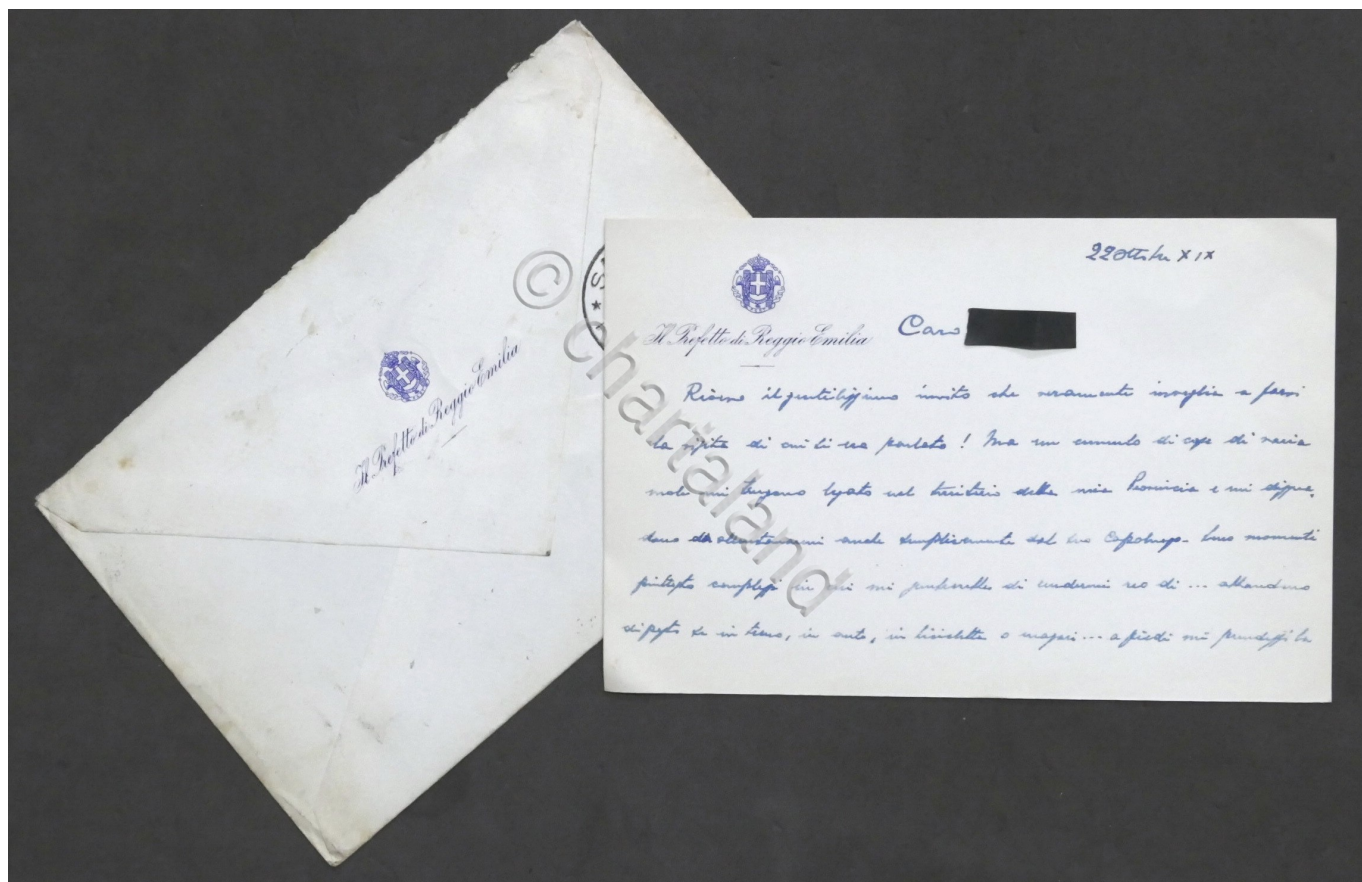 Il Prefetto di Reggio Emilia
© chartaland
22 Ottobre XIX
Il Prefetto di Reggio Emilia
Caro
Ricevo il gentilissimo invito che veramente invoglia a farvi
la visita di cui ti ero parlato! Ma un cumulo di cose di varia
mole mi tengono legato nel territorio della mia Provincia e mi
da allontanarmi anche semplicemente dal suo Capoluogo. Sono momenti
piuttosto complessi in cui mi parrebbe di rendermi reo di ... abbandono
di posto se in treno, in auto, in bicicletta o magari ... a piedi mi prendessi la